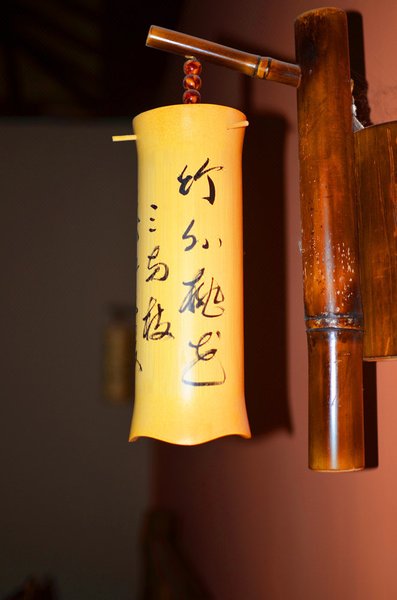 竹外桃花
三两枝